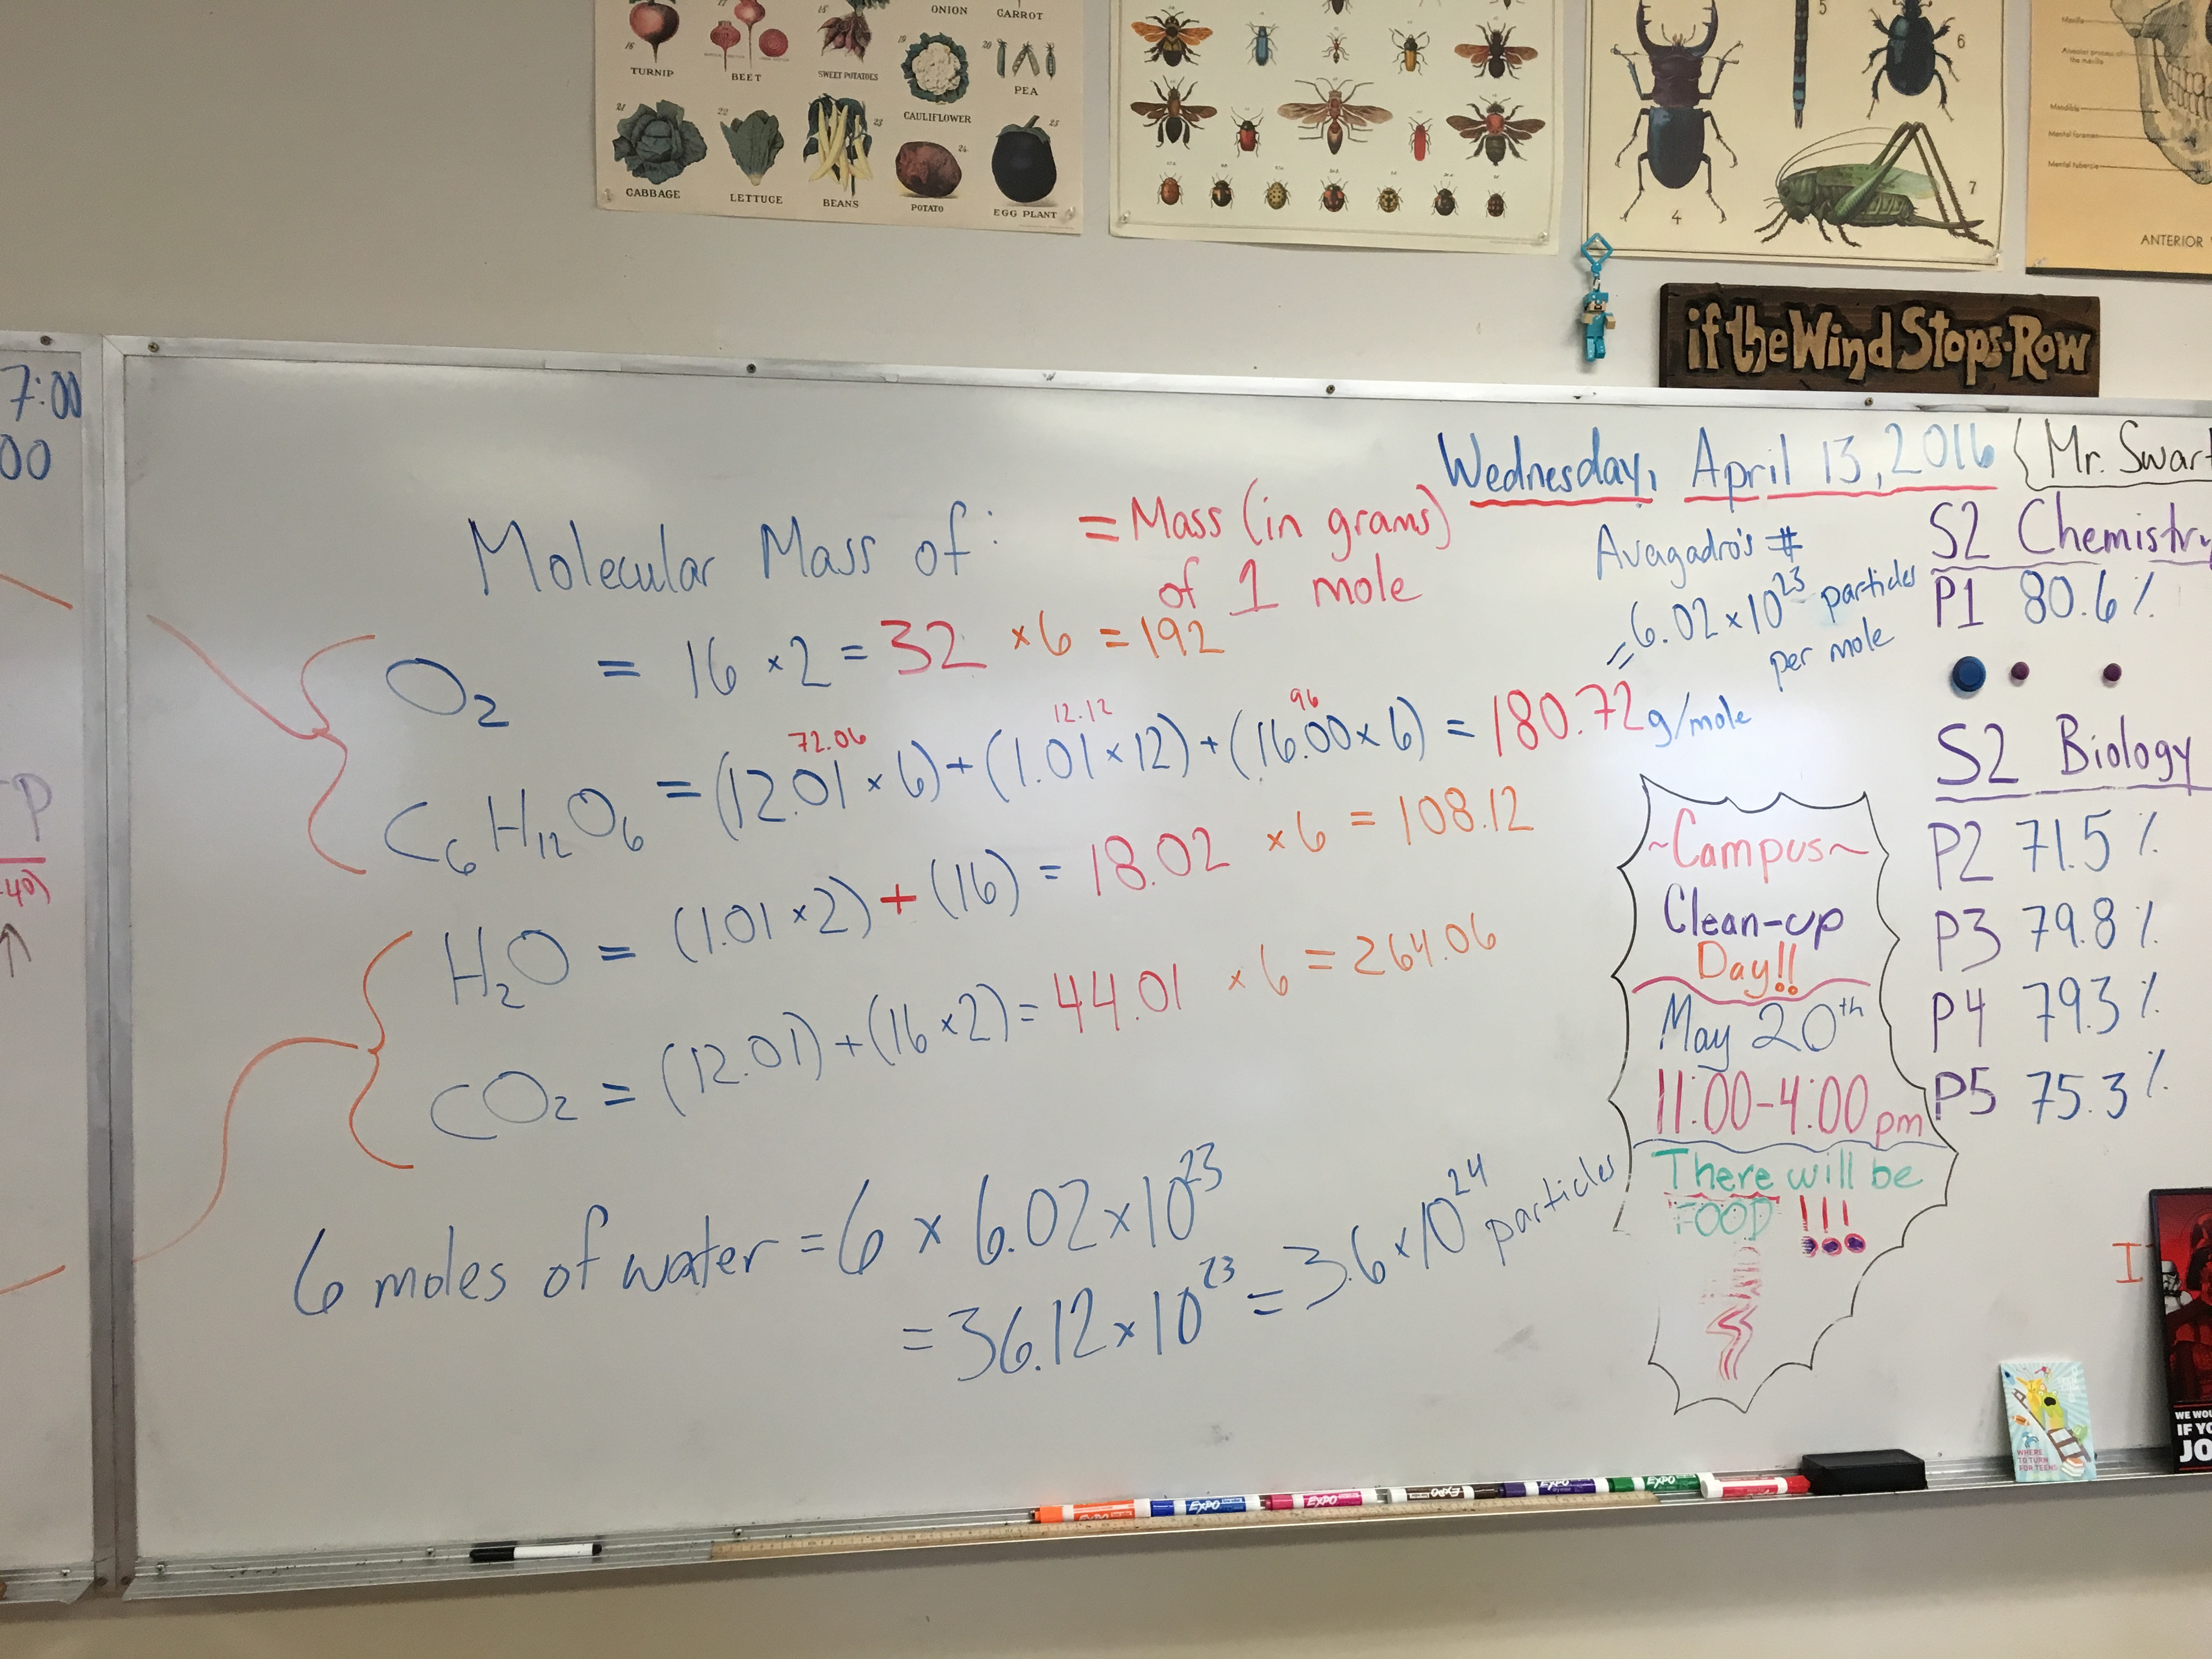 ONION
CARROT
16
17
18
19
20
TURNIP
BEET
SWEET POTATOES
CAULIFLOWER
PEA
21
22
23
24
25
CABBAGE
LETTUCE
BEANS
POTATO
EGG PLANT
5
6
4
7
Mandible
Mental foramen
Mental tubercle
ANTERIOR
if the Wind Stops-Row
7:00
00
Wednesday, April 13, 2016
Mr. Swart
Molecular Mass of: = Mass (in grams)
of 1 mole
O2 = 16 × 2 = 32 × 6 = 192
72.06 12.12 96
C6H12O6 = (12.01 × 6) + (1.01 × 12) + (16.00 × 6) = 180.72 g/mole
H2O = (1.01 × 2) + (16) = 18.02 × 6 = 108.12
CO2 = (12.01) + (16 × 2) = 44.01 × 6 = 264.06
6 moles of water = 6 × 6.02 × 10^23
= 36.12 × 10^23 = 3.6 × 10^24 particles
Avagadro's #
= 6.02 × 10^23 particles
per mole
S2 Chemistry
P1 80.6%
S2 Biology
P2 71.5%
P3 79.8%
P4 79.3%
P5 75.3%
~Campus~
Clean-up
Day!!
May 20th
11:00-4:00 pm
There will be
FOOD !!!
P
I
EXPO
EXPO
EXPO
EXPO
EXPO
EXPO
WHERE
TO TURN
FOR TEENS
WE WOU
IF YO
JO